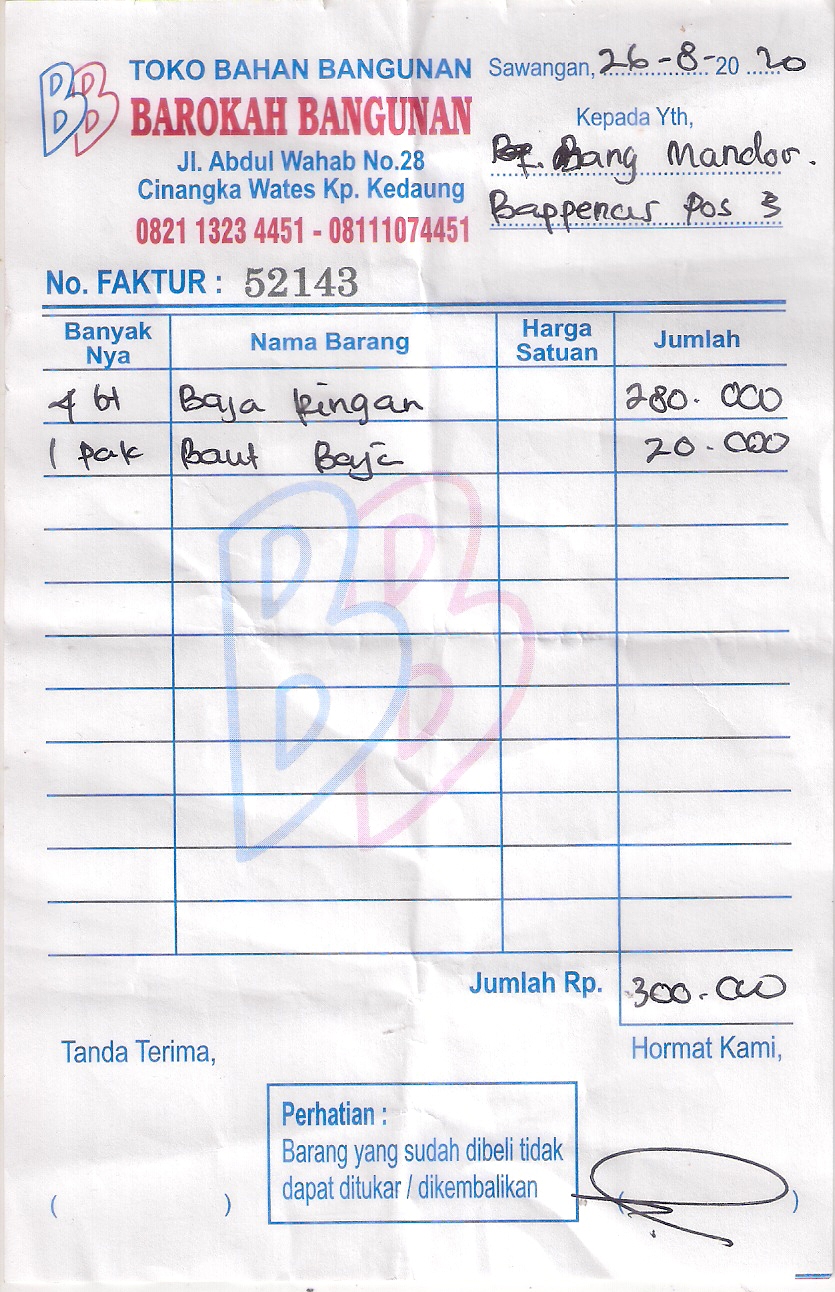 TOKO BAHAN BANGUNAN
BAROKAH BANGUNAN
Jl. Abdul Wahab No.28
Cinangka Wates Kp. Kedaung
0821 1323 4451 - 08111074451
Sawangan, 26-8-20 20
Kepada Yth,
Bang Mandor.
Bappenas Pos 3
No. FAKTUR : 52143
Banyak Nya Nama Barang Harga Satuan Jumlah
4 bt Baja Ringan 280.000
1 pak Baut Baja 20.000
Jumlah Rp. 300.000
Tanda Terima, Hormat Kami,
Perhatian :
Barang yang sudah dibeli tidak
dapat ditukar / dikembalikan
( ) ( )